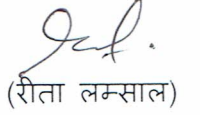 (रीता लम्साल)